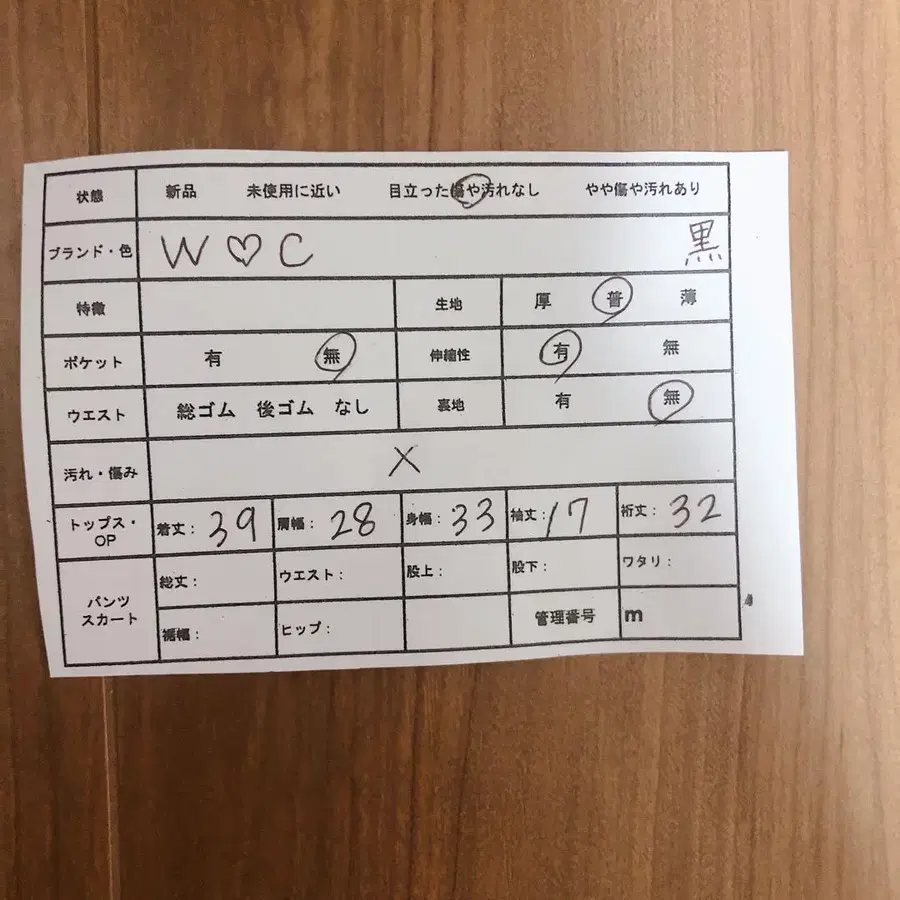 状態 新品 未使用に近い 目立った傷や汚れなし やや傷や汚れあり
ブランド・色 W♡C 黒
特徴 生地 厚 普 薄
ポケット 有 無 伸縮性 有 無
ウエスト 総ゴム 後ゴム なし 裏地 有 無
汚れ・傷み ×
トップス・OP 着丈: 39 肩幅: 28 身幅: 33 袖丈: 17 裄丈: 32
パンツ スカート 総丈: ウエスト: 股上: 股下: ワタリ:
裾幅: ヒップ: 管理番号 m